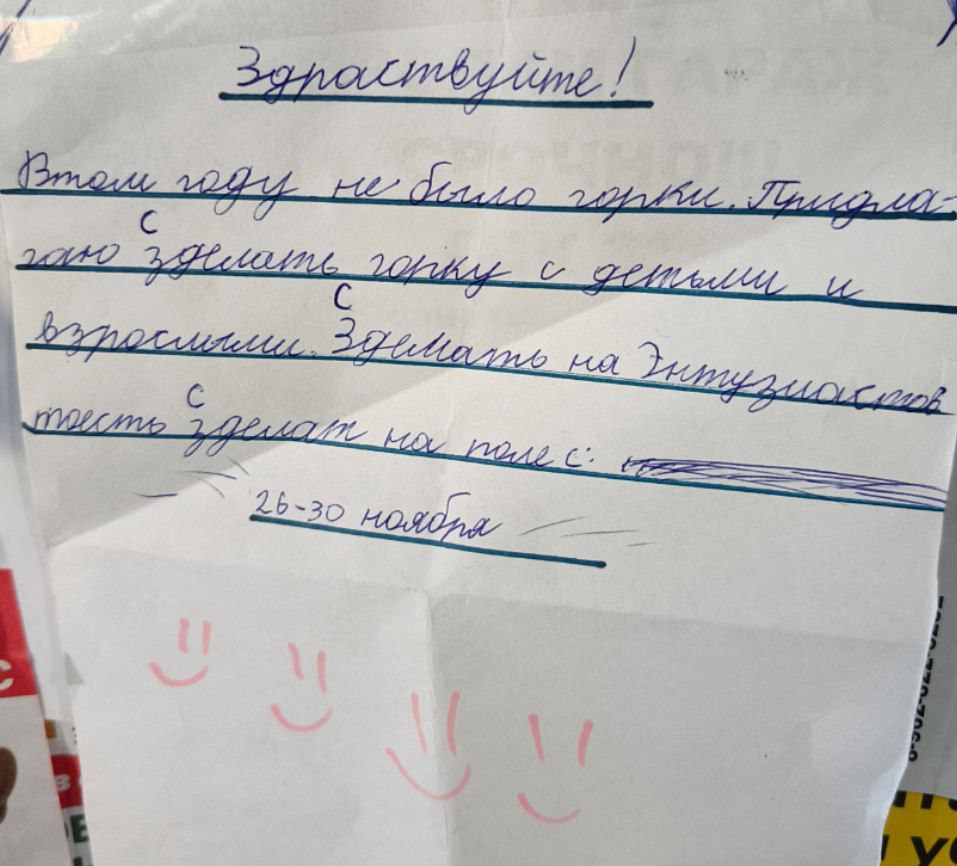 Здраствуйте!
Втом году не было горки. Придла-
С
гаю зделать горку с детьми и
С
взрослыми. Зделать на Энтузиастов
С
тоесть зделат на поле с:
26-30 ноября